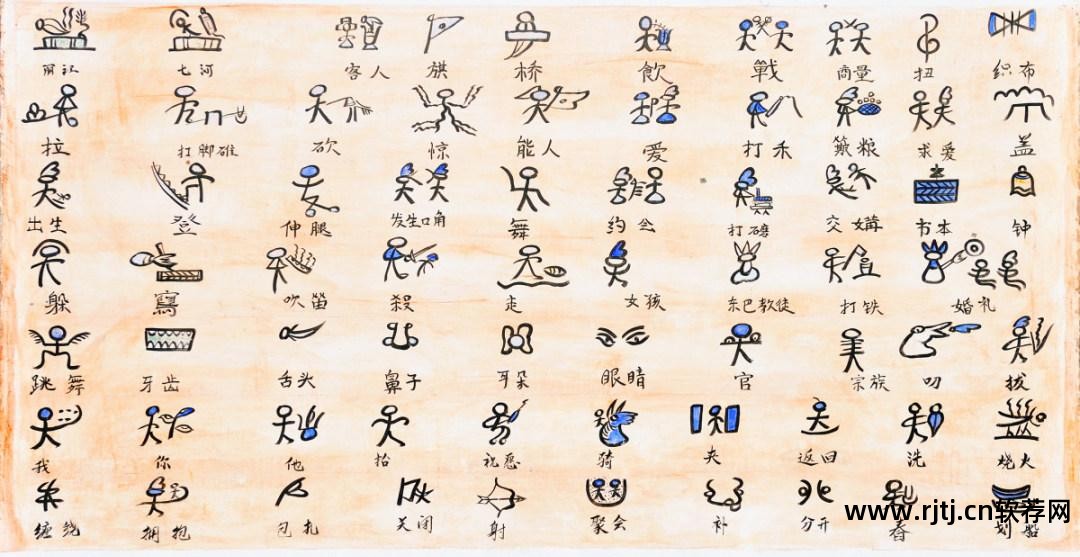 丽江 七河 客人 旗 桥 飲 戰 商量 扭 织布
拉 打脚碓 砍 惊 能人 爱 打禾 簸粮 求爱 盖
出生 登 伸腿 发生口角 舞 约会 交媾 书本 钟
躲 寫 吹笛 殺 走 女孩 东巴教徒 打铁 婚礼
跳舞 牙齿 舌头 鼻子 耳朵 眼睛 官 宗族 拔
我 你 他 骑 夹 返回 洗 烧火
缠绕 拥抱 包扎 关闭 射 聚会 补 分开 划船
www.rjtj.cn软荐网